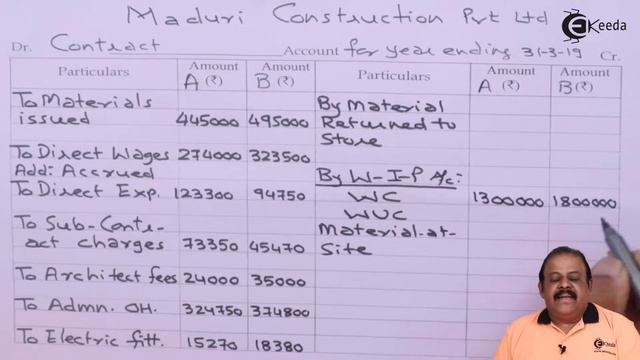 Maduri Construction Pvt Ltd
EKeeda
Dr. Contract Account for year ending 31-3-19 Cr.
Particulars Amount A (₹) Amount B (₹) Particulars Amount A (₹) Amount B (₹)
To Materials issued 445000 495000
By Material Returned to Store
To Direct Wages 274000 323500
Add: Accrued
By W-I-P A/c:
To Direct Exp. 123300 94750
WC 1300000 1800000
WUC
To Sub-Contract charges 73350 45470
Material-at-Site
To Architect fees 24000 35000
To Admn. OH. 324750 374800
To Electric fitt. 15270 18380